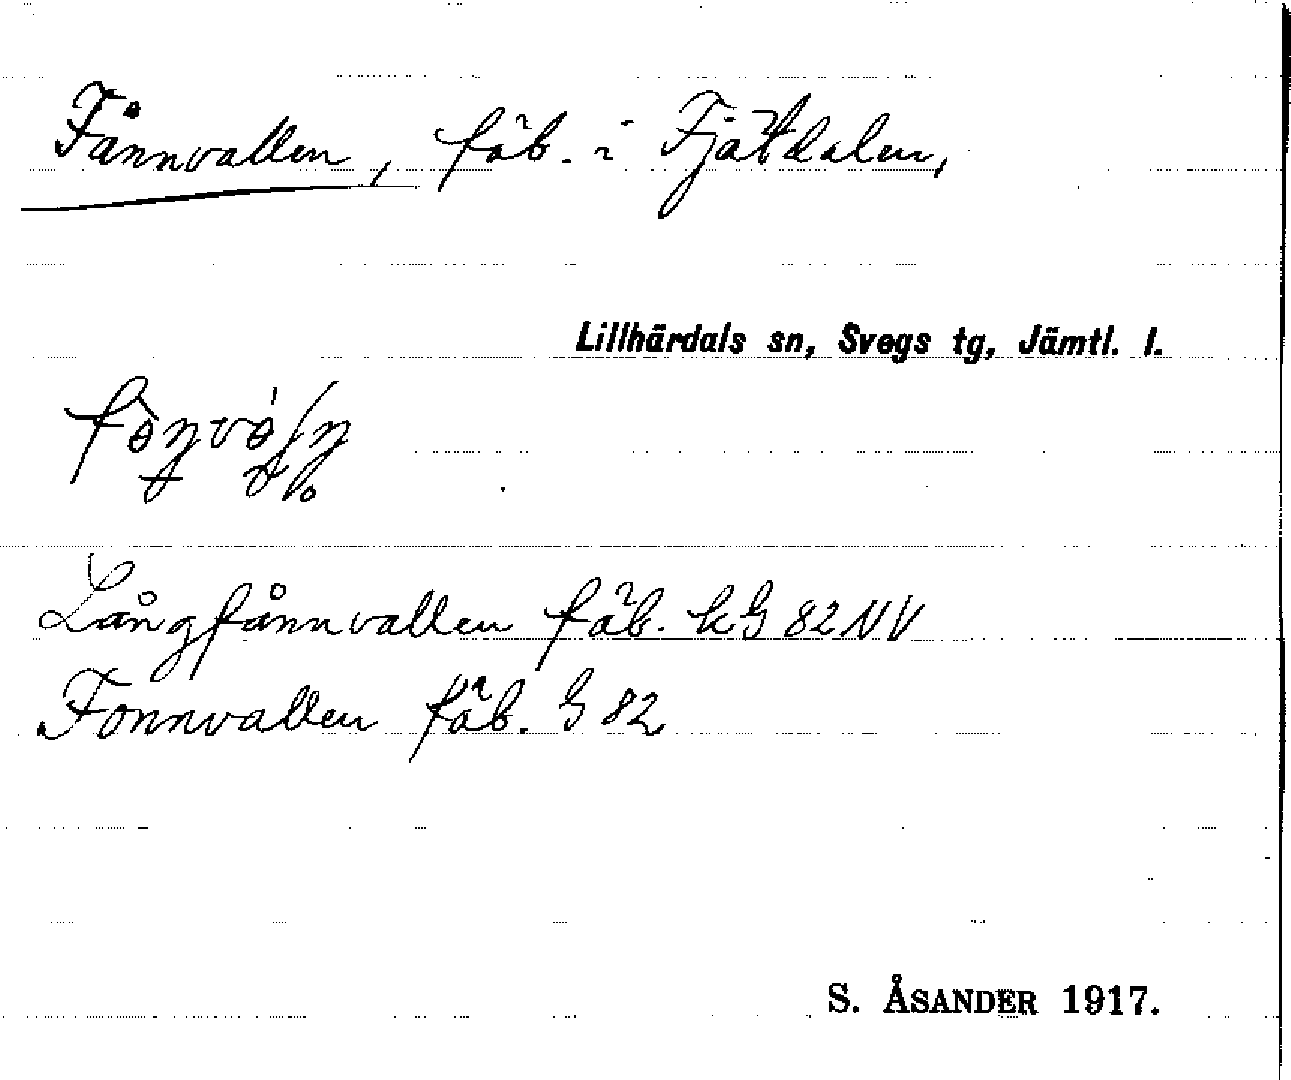 Fånnvallen, fäb. i Fjätdalen,
Lillhärdals sn, Svegs tg, Jämtl. l.
Långfånnvallen fäb. kG 82 NV
Fonnvallen fäb. G 82
S. ÅSANDER 1917.